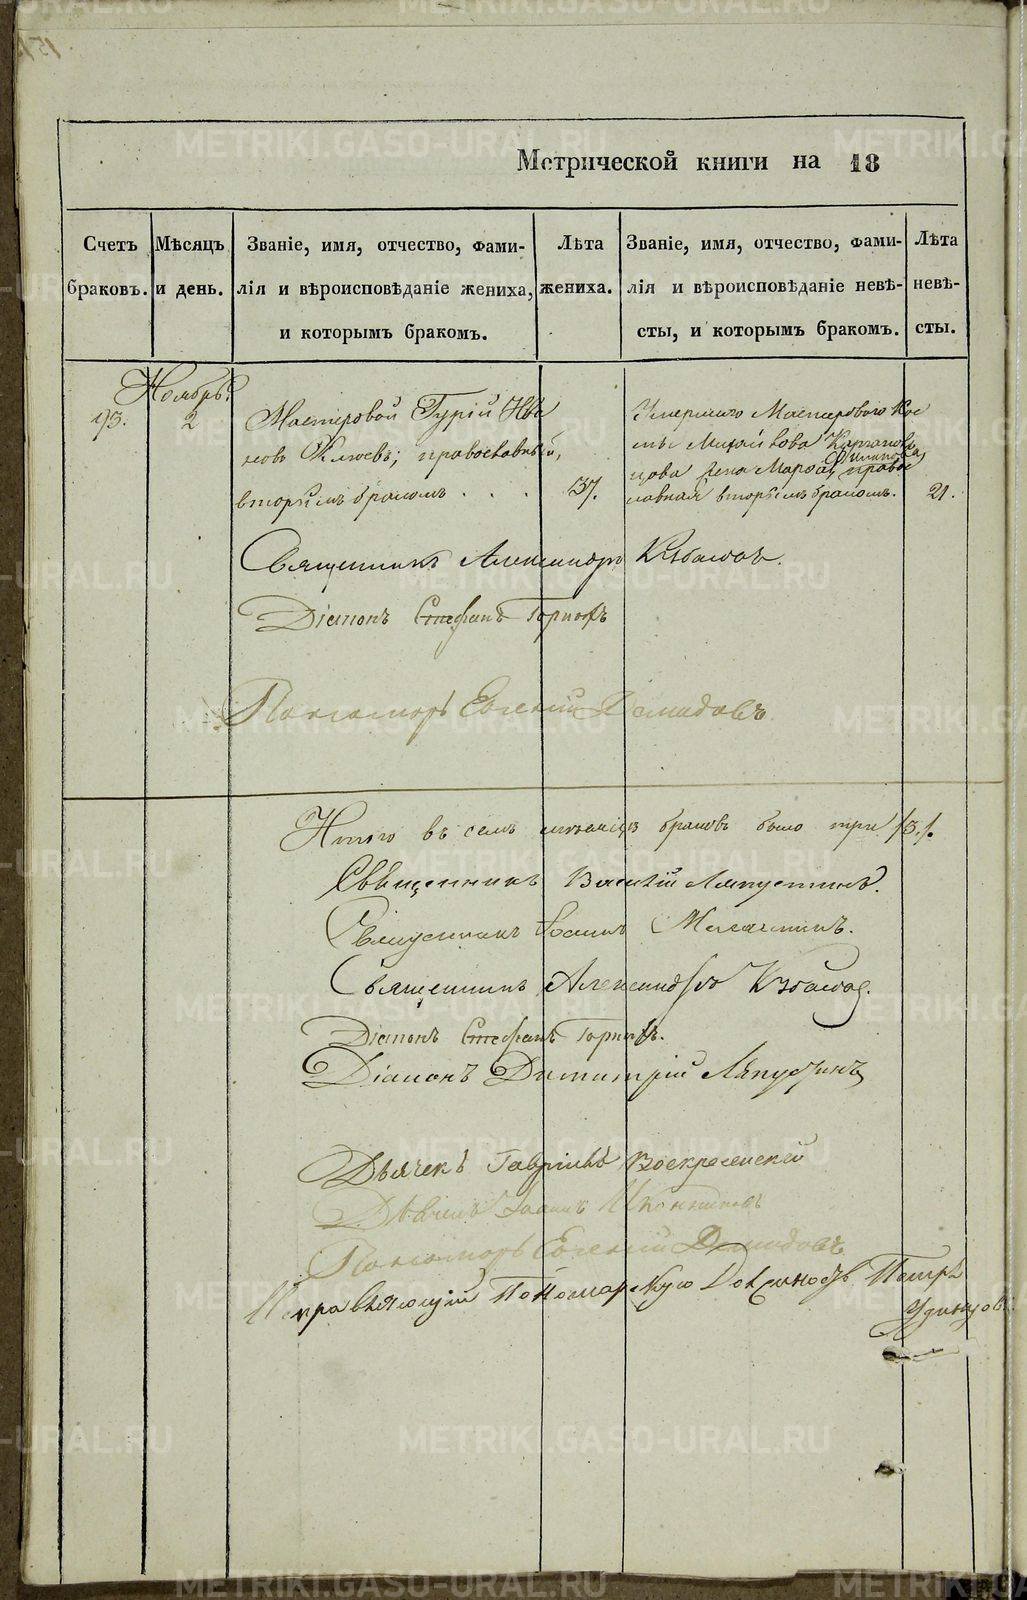 Метрической книги на 18
Счетъ браковъ.
Мѣсяцъ и день.
Званіе, имя, отчество, фами-
лія и вѣроисповѣданіе жениха,
и которымъ бракомъ.
Лѣта жениха.
Званіе, имя, отчество, фами-
лія и вѣроисповѣданіе невѣ-
сты, и которымъ бракомъ.
Лѣта невѣ-
сты.
Ноябрь
93.
2
Мастеровой Гурій Ива
новъ православный,
вторымъ бракомъ . . .
37.
Умершаго Мастероваго Кос
Филипова,
цова Жена Марѳа, правос
лавная вторымъ бракомъ.
21.
Священникъ Александръ
Діаконъ Стефанъ Горновъ
Пономарь Евгеній Демидовъ
Итого въ семъ мѣсяцѣ браковъ было три /3./.
Священникъ Василій Ляпустинъ.
Священникъ Іоаннъ
Священникъ Александръ
Діаконъ Стефанъ Горновъ.
Діаконъ Димитрій Ляпустинъ
Дьячекъ Гавріилъ Воскресенскій
Дьячекъ Іоаннъ Иконниковъ
Пономарь Евгеній Демидовъ
Исправляющій Пономарскую Должность Петръ
Удинцовъ
METRIKI.GASO-URAL.RU